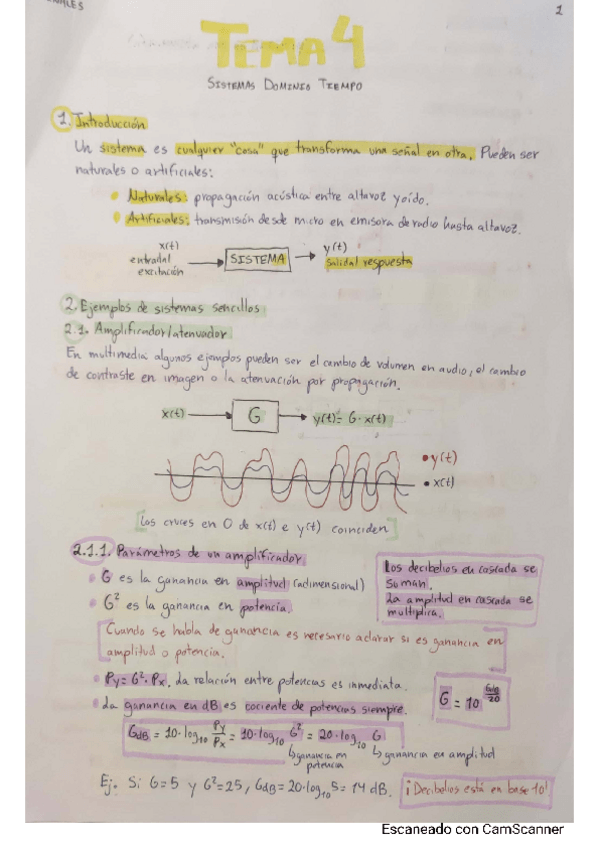 1
TEMA 4
SISTEMAS DOMINIO TIEMPO
1. Introducción
Un sistema es cualquier "cosa" que transforma una señal en otra. Pueden ser
naturales o artificiales:
• Naturales: propagación acústica entre altavoz y oído.
• Artificiales: transmisión desde micro en emisora de radio hasta altavoz.
x(t)
entrada/
excitación
SISTEMA
y(t)
salida/ respuesta
2. Ejemplos de sistemas sencillos
2.1. Amplificador/atenuador
En multimedia algunos ejemplos pueden ser el cambio de volumen en audio, el cambio
de contraste en imagen o la atenuación por propagación.
x(t) G y(t) = G · x(t)
• y(t)
• x(t)
Los cruces en 0 de x(t) e y(t) coinciden
2.1.1. Parámetros de un amplificador
• G es la ganancia en amplitud (adimensional)
• G² es la ganancia en potencia.
Los decibelios en cascada se
suman.
La amplitud en cascada se
multiplica.
Cuando se habla de ganancia es necesario aclarar si es ganancia en
amplitud o potencia.
• Py = G² · Px. La relación entre potencias es inmediata.
• La ganancia en dB es cociente de potencias siempre.
G = 10^(GdB/20)
GdB = 10 · log10 Py/Px = 10 · log10 G² = 20 · log10 G
↳ ganancia en potencia
↳ ganancia en amplitud
Ej. Si G=5 y G²=25, GdB = 20 · log10 5 = 14 dB.
¡Decibelios está en base 10!
Escaneado con CamScanner